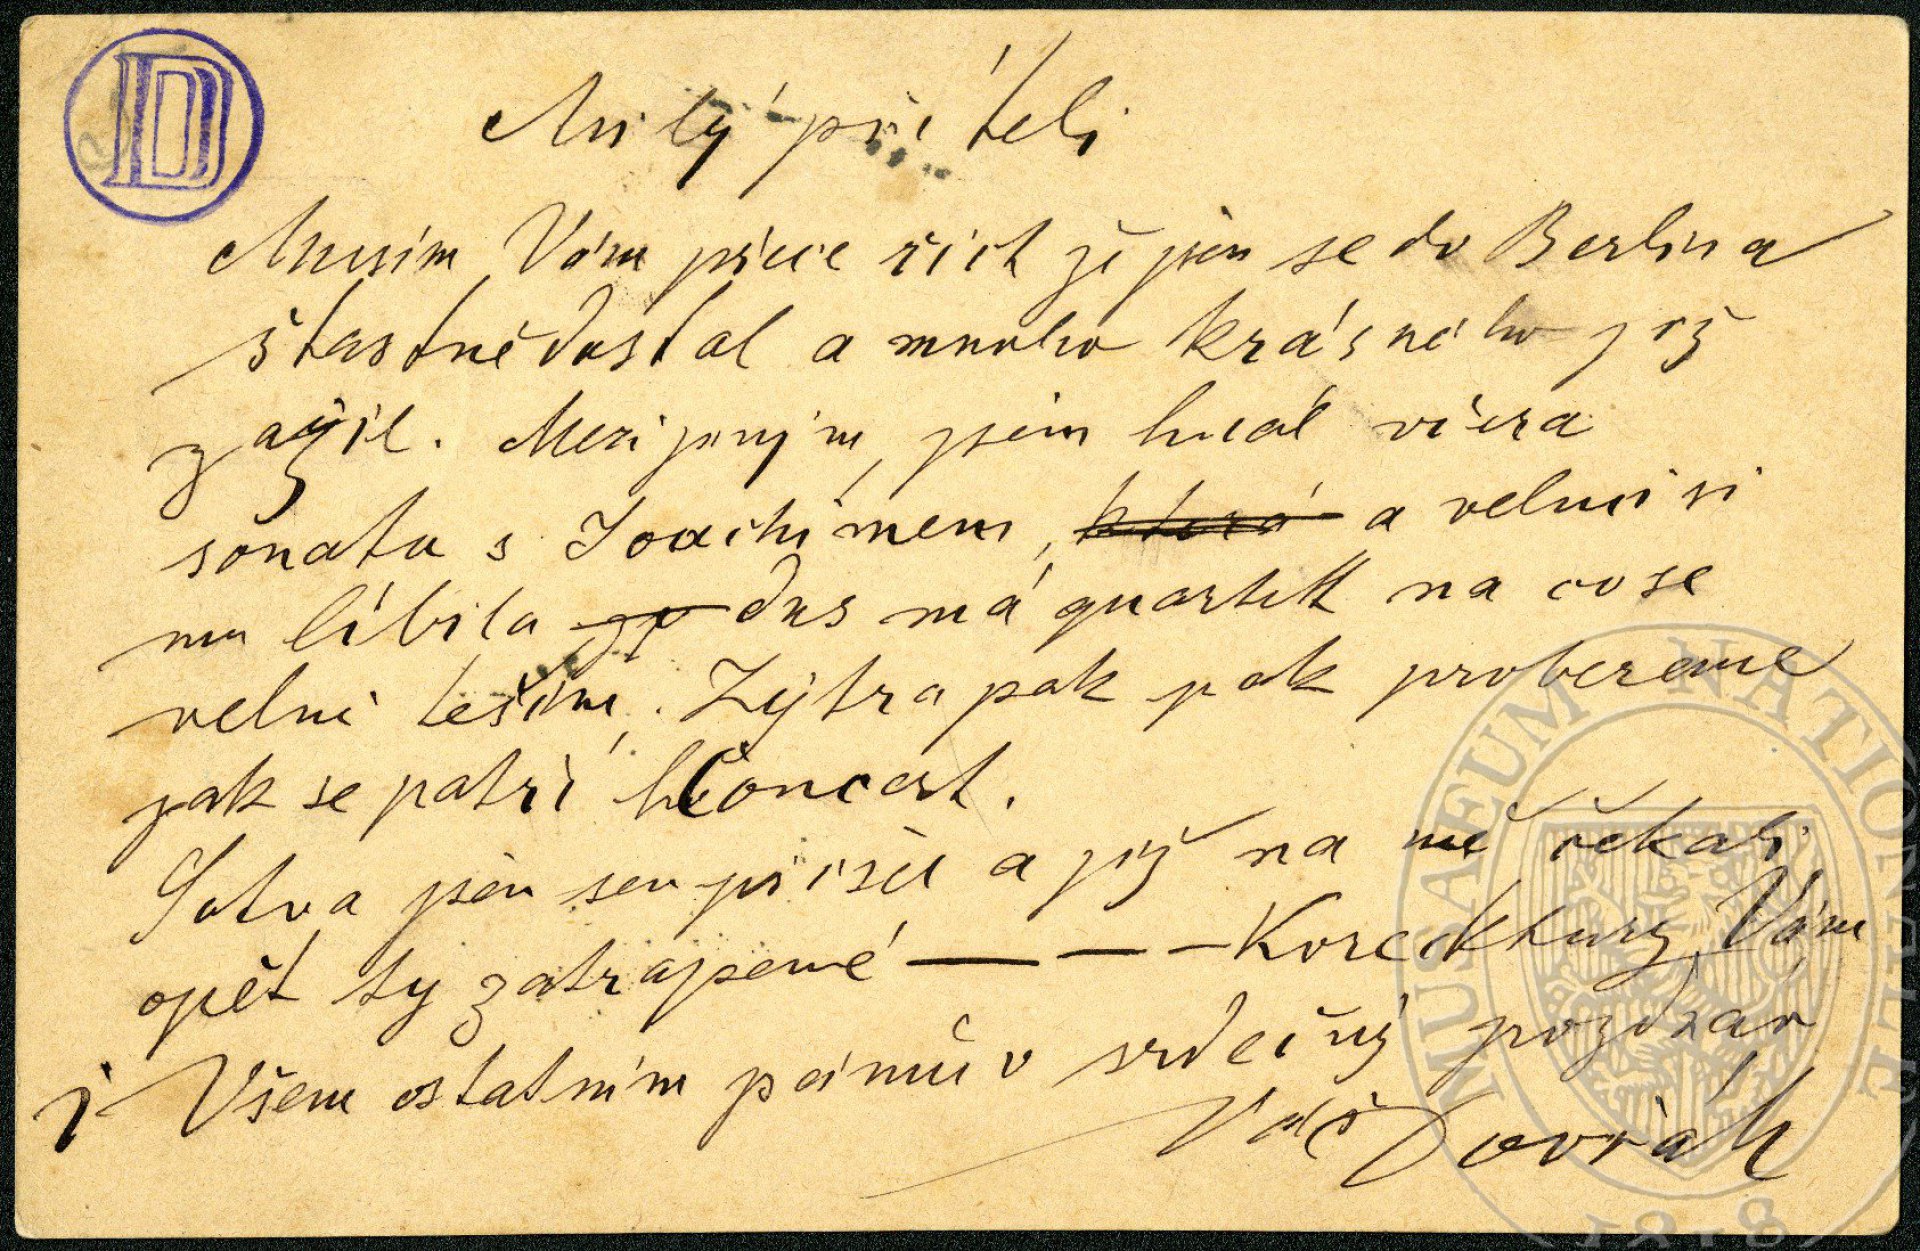 D
Milý příteli
Musím Vám přece říct že jsem se do Berlina
štastně dostal a mnoho krásného již
zažil. Mezi jiným, jsem hrál včera
sonatu s Joachimem, která a velmi si
mu líbila dnes má quartett na co se
velmi těším. Zýtra pak pak probereme
jak se patří Concert.
Sotva jsem sem přišel a již na mě čekali
opět ty zatrápené — — — Korecktury Vám
i Všem ostatním pánům v srdečný pozdrav
Váš Dvořák
MUSAEUM NATIONALE
1818